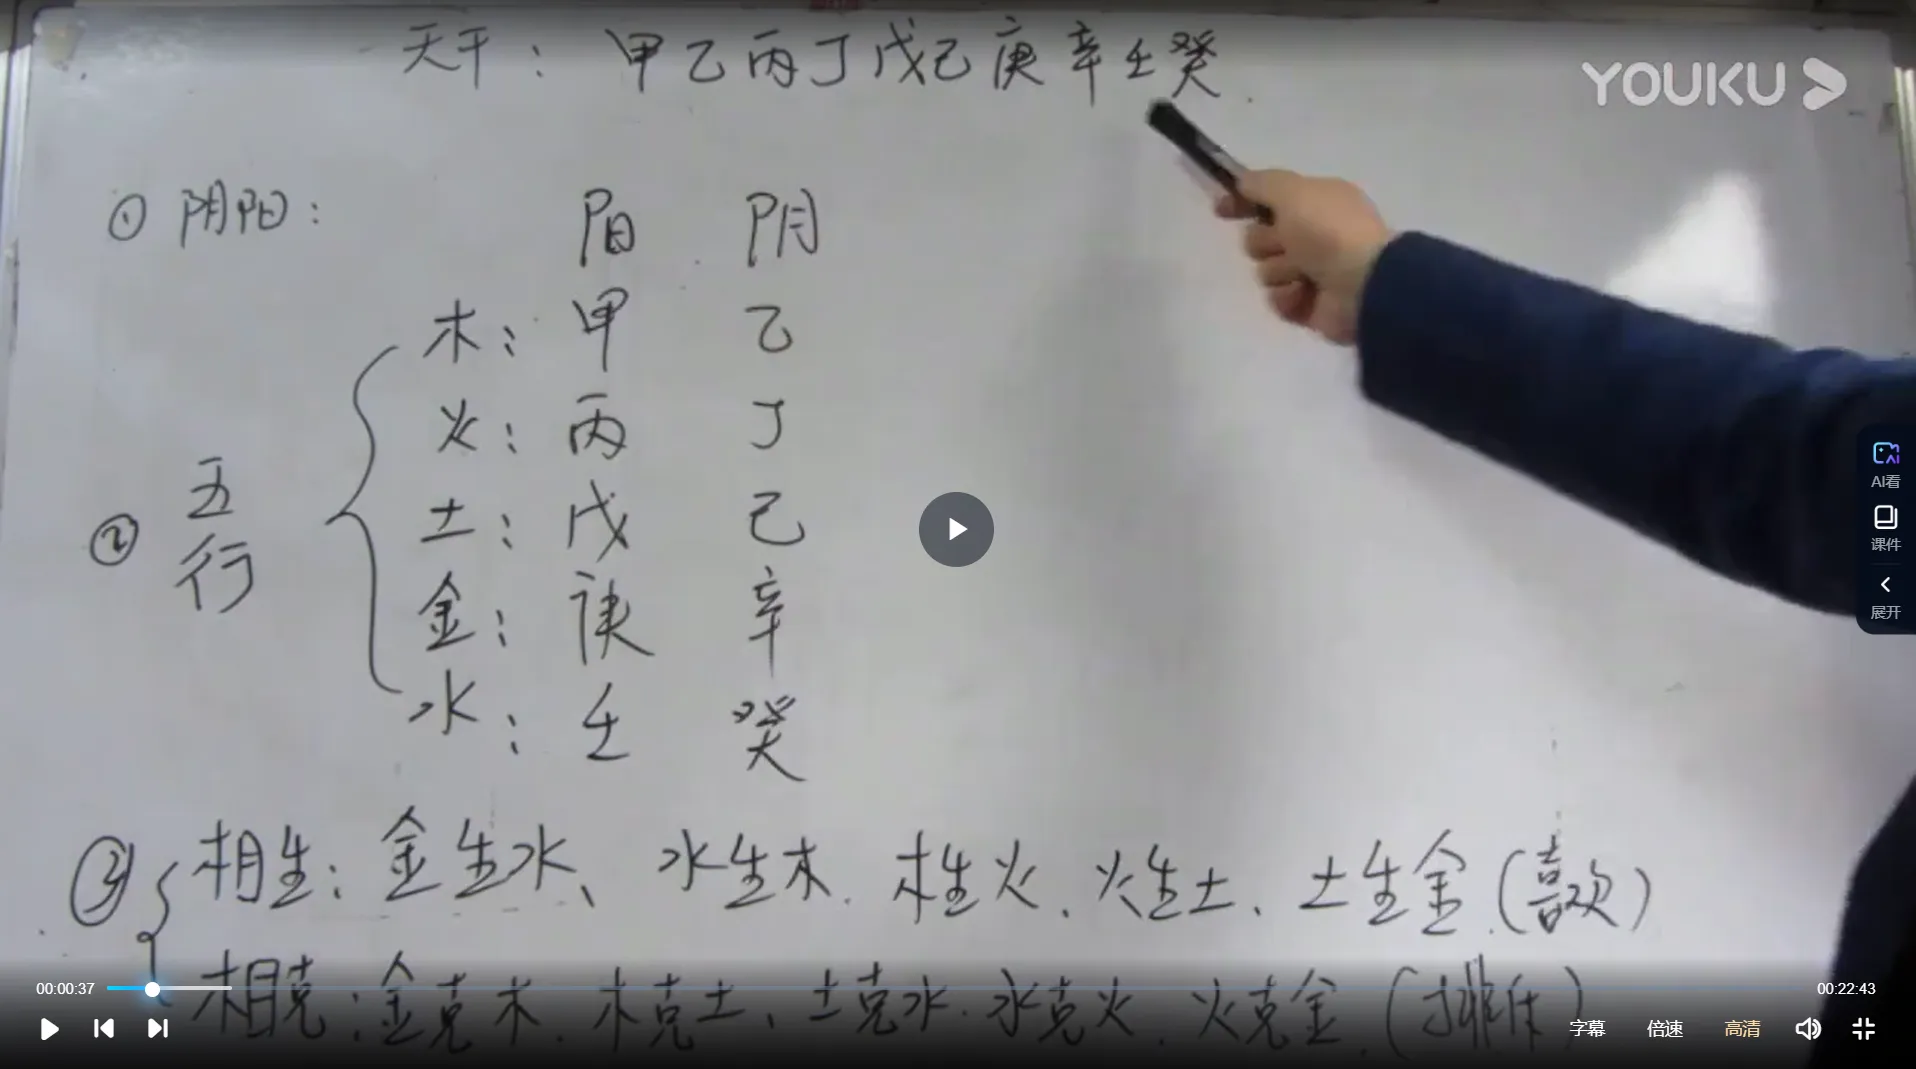 天干：甲乙丙丁戊己庚辛壬癸.
YOUKU
① 阴阳： 阳 阴
木：甲 乙
火：丙 丁
② 五行
土：戊 己
金：庚 辛
水：壬 癸
③ 相生：金生水、水生木.木生火.火生土.土生金.(喜欢)
相克：金克木.木克土、土克水.水克火.火克金.(排斥)
AI看
课件
展开
00:00:37
00:22:43
字幕 倍速 高清